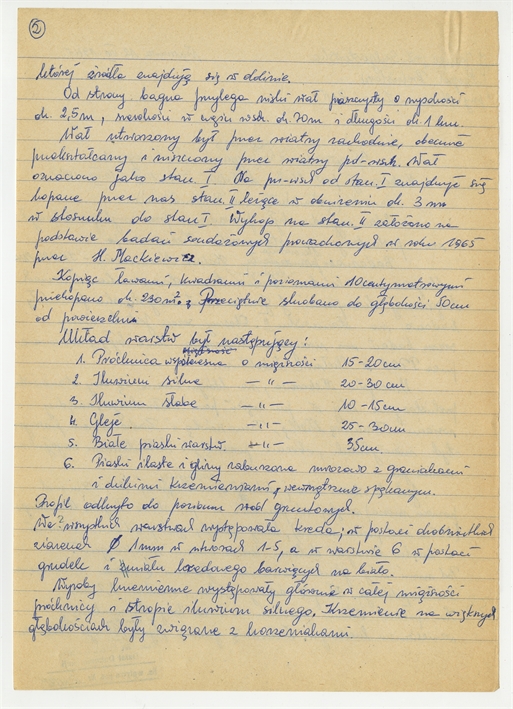 2
której źródła znajdują się w dolinie.
Od strony bagna przylega niski wał piaszczysty o wysokości
ok. 2,5 m, szerokości w części wsch. ok. 70 m i długości ok. 1 km.
Wał utworzony był przez wiatry zachodnie, obecnie
przekształcany i niszczony przez wiatry pd-wsch. Wał
oznaczono jako stan. I. Na pn-wsch od stan. I znajduje się
kopane przez nas stan. II leżące w obniżeniu ok. 3 m
w stosunku do stan I. Wykop na stan. II założono na
podstawie badań sondażowych prowadzonych w roku 1965
przez H. Mackiewicz.
Kopiąc ławami, kwadratami i poziomami 10 centymetrowymi
przekopano ok. 230 m². Przeciętnie skrobano do głębokości 50 cm
od powierzchni.
Układ warstw był następujący:
1. Próchnica współczesna o miąższości 15-20 cm
2. Iluwium silne — „ — 20-30 cm
3. Iluwium słabe — „ — 10-15 cm
4. Gleje — „ — 25-30 cm
5. Białe piaski warstw. — „ — 35 cm.
6. Piaski ilaste i gliny zaburzone mrozowo z graniakami
i dużymi krzemieniami, wewnętrznie spękanymi.
Profil odkryto do poziomu wód gruntowych.
We wszystkich warstwach występowała kreda; w postaci drobniutkich
ziarenek Ø 1 mm w utworach 1-5, a w warstwie 6 w postaci
grudek i mułu kredowego barwiących na biało.
Wyroby krzemienne występowały głównie w całej miąższości
próchnicy i stropie iluwium silnego. Krzemienie na większych
głębokościach były związane z korzeniakami.